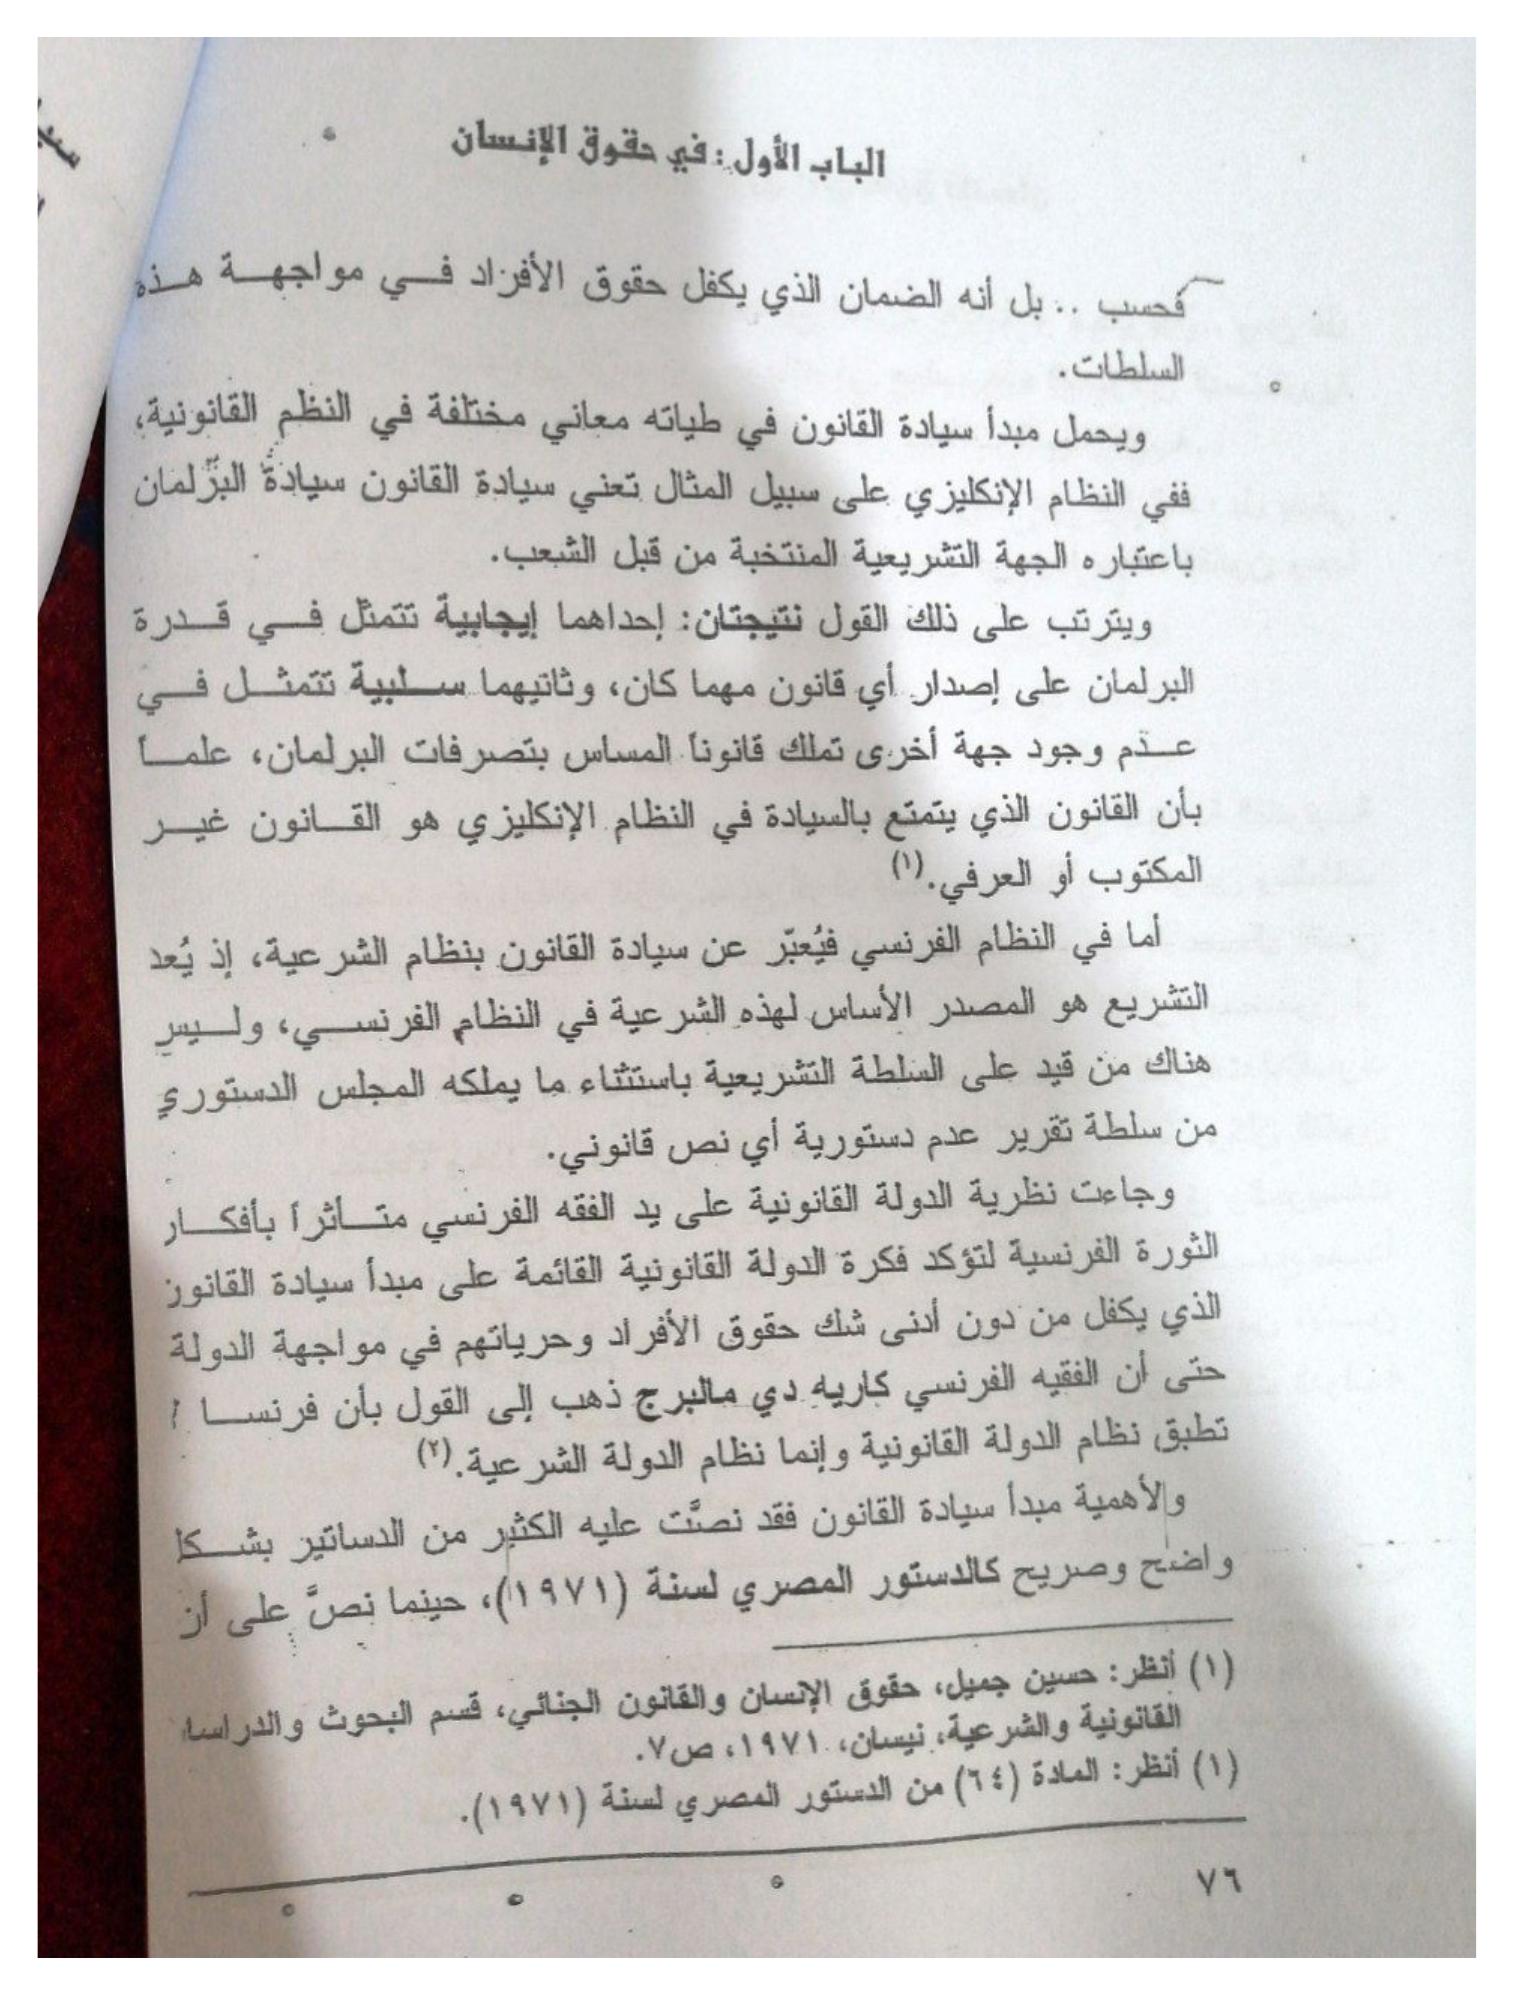 الباب الأول: في حقوق الإنسان
فحسب .. بل أنه الضمان الذي يكفل حقوق الأفراد في مواجهة هذه
السلطات.
ويحمل مبدأ سيادة القانون في طياته معاني مختلفة في النظم القانونية،
ففي النظام الإنكليزي على سبيل المثال تعني سيادة القانون سيادة البرلمان
باعتباره الجهة التشريعية المنتخبة من قبل الشعب.
ويترتب على ذلك القول نتيجتان: إحداهما إيجابية تتمثل في قدرة
البرلمان على إصدار أي قانون مهما كان، وثانيهما سلبية تتمثل في
عدم وجود جهة أخرى تملك قانوناً المساس بتصرفات البرلمان، علماً
بأن القانون الذي يتمتع بالسيادة في النظام الإنكليزي هو القانون غير
المكتوب أو العرفي.(١)
أما في النظام الفرنسي فيُعبّر عن سيادة القانون بنظام الشرعية، إذ يُعد
التشريع هو المصدر الأساس لهذه الشرعية في النظام الفرنسي، وليس
هناك من قيد على السلطة التشريعية باستثناء ما يملكه المجلس الدستوري
من سلطة تقرير عدم دستورية أي نص قانوني.
وجاءت نظرية الدولة القانونية على يد الفقه الفرنسي متأثراً بأفكار
الثورة الفرنسية لتؤكد فكرة الدولة القانونية القائمة على مبدأ سيادة القانون
الذي يكفل من دون أدنى شك حقوق الأفراد وحرياتهم في مواجهة الدولة
حتى أن الفقيه الفرنسي كاريه دي مالبرج ذهب إلى القول بأن فرنسا
تطبق نظام الدولة القانونية وإنما نظام الدولة الشرعية.(٢)
والأهمية مبدأ سيادة القانون فقد نصَّت عليه الكثير من الدساتير بشكل
واضح وصريح كالدستور المصري لسنة (١٩٧١)، حينما نصَّ على أن
(١) أنظر: حسين جميل، حقوق الإنسان والقانون الجنائي، قسم البحوث والدراسا
القانونية والشرعية، نيسان، ١٩٧١، ص٧.
(١) أنظر: المادة (٦٤) من الدستور المصري لسنة (١٩٧١).
٧٦